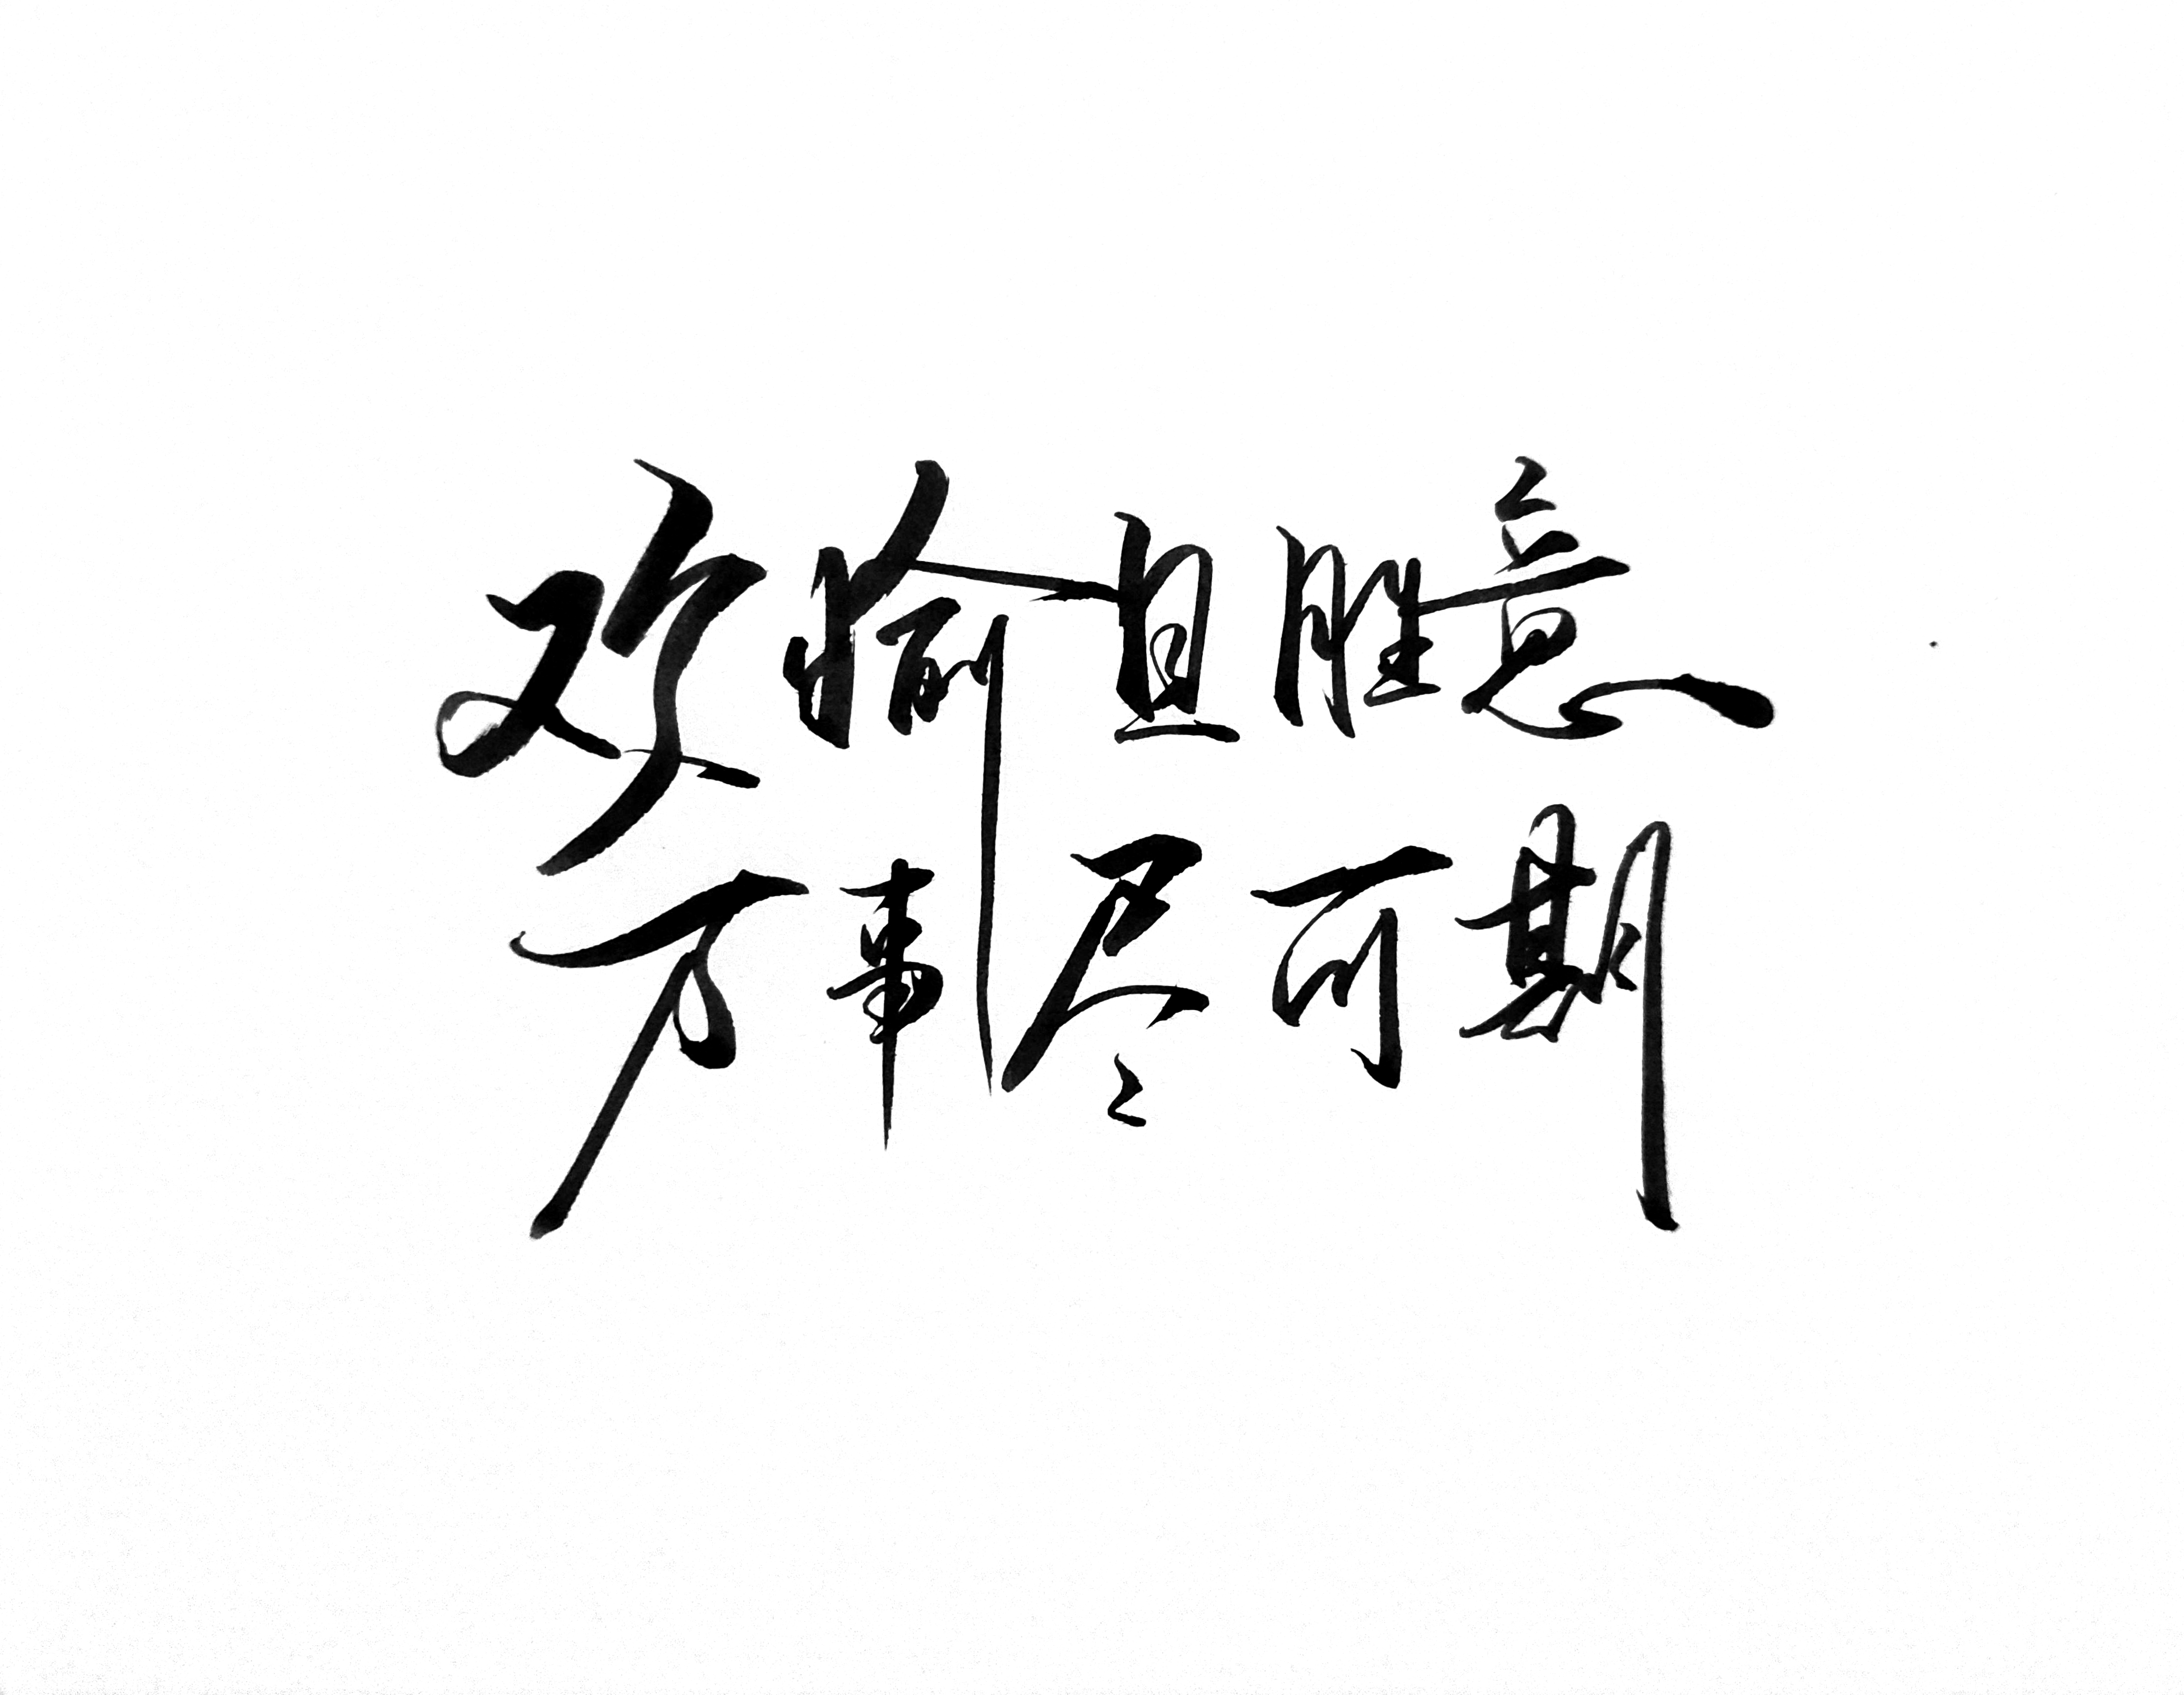 欢愉且胜意
万事尽可期